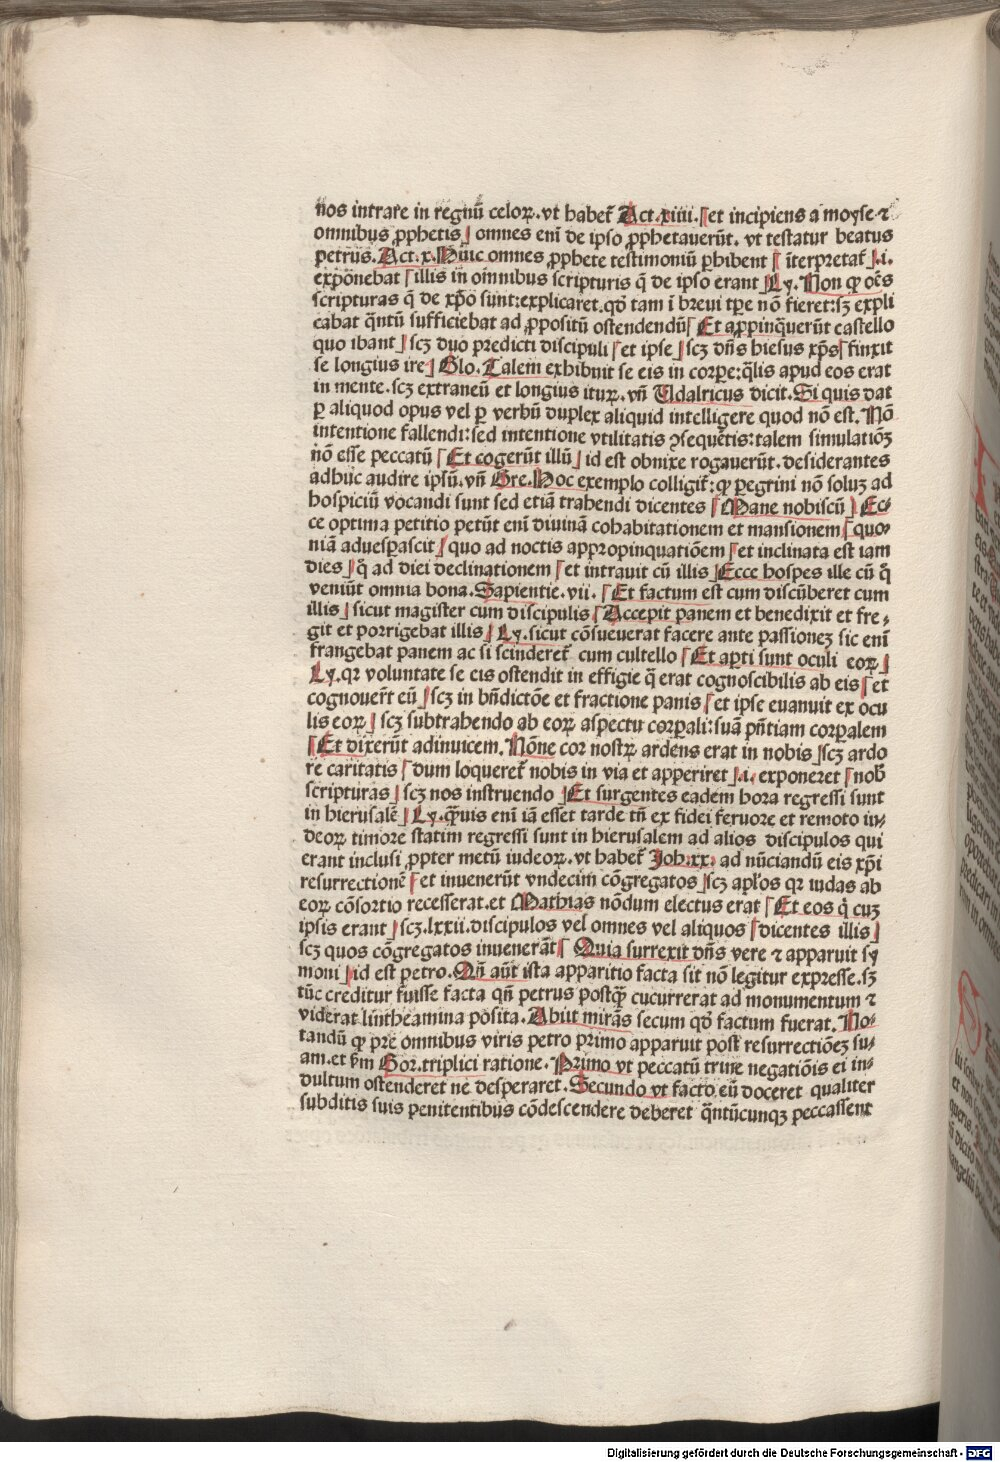 nos intrare in regnū celoꝝ. vt habet᷑ Act. xiiii. et incipiens a moyse ⁊
omnibus ꝓphetis omnes eni̅ de ipso ꝓphetauerūt. vt testatur beatus
petrus. Act. x. Huic omnes ꝓphete testimoniū ꝑhibent ĩterpretat᷑ .i.
exponebat illis in omnibus scripturis q̄ de ipso erant Ly. Non ꝙ oēs
scripturas q̄ de xp̄o sunt: explicaret. qd̄ tam ī breui tp̄e nō fieret: sꝫ expli
cabat q̄ntū sufficiebat ad ꝓpositū ostendendū Et appinq̄uerūt castello
quo ibant scꝫ duo predicti discipuli et ipse scꝫ dn̄s hiesus xp̄s finxit
se longius ire Glo. Talem exhibuit se eis in corpe: q̄lis apud eos erat
in mente. scꝫ extraneū et longius ituꝝ. vn̄ Udalricus dicit. Si quis dat
ꝑ aliquod opus vel ꝑ verbū duplex aliquid intelligere quod nō est. Nō
intentione fallendi: sed intentione vtilitatis ↄsequētis: talem simulatiōꝫ
nō esse peccatū Et cogerūt illū id est obnixe rogauerūt. desiderantes
adhuc audire ip̄sū. vn̄ Gre. Hoc exemplo colligit᷑: ꝙ pegrini nō soluꝫ ad
hospiciū vocandi sunt sed etiā trahendi dicentes Mane nobiscū Ec-
ce optima petitio petūt eni̅ diuinā cohabitationem et mansionem quo-
niā aduespascit quo ad noctis appropinquatiōem et inclinata est iam
dies q̄ ad diei declinationem et intrauit cū illis Ecce hospes ille cū q̄
veniūt omnia bona. Sapientie. vii. Et factum est cum discūberet cum
illis sicut magister cum discipulis Accepit panem et benedixit et fre-
git et porrigebat illis Ly. sicut cōsueuerat facere ante passioneꝫ sic eni̅
frangebat panem ac si scinderet᷑ cum cultello Et aꝑti sunt oculi eoꝝ
Ly. qꝛ voluntate se eis ostendit in effigie q̄ erat cognoscibilis ab eis et
cognouer̄t eū scꝫ in bn̄dictōe et fractione panis et ipse euanuit ex ocu
lis eoꝝ scꝫ subtrahendo ab eoꝝ aspectu corꝑali: suā pn̄tiam corꝑalem
Et dixerūt adinuicem. Nōne cor nostꝝ ardens erat in nobis scꝫ ardo
re caritatis dum loqueret᷑ nobis in via et apperiret .i. exponeret nob̄
scripturas scꝫ nos instruendo Et surgentes eadem hora regressi sunt
in hierusalē Ly. q̄uis eni̅ iā esset tarde tn̄ ex fidei feruore et remoto iu-
deoꝝ timore statim regressi sunt in hierusalem ad alios discipulos qui
erant inclusi ꝓpter metū iudeoꝝ. vt habet᷑ Joh. xx. ad nūciandū eis xp̄i
resurrectionē et inuenerūt vndecim cōgregatos scꝫ apl̄os qꝛ iudas ab
eoꝝ cōsortio recesserat. et Mathias nōdum electus erat Et eos q̄ cuꝫ
ipsis erant scꝫ. lxxii. discipulos vel omnes vel aliquos dicentes illis
scꝫ quos cōgregatos inuenerāt Quia surrexit dn̄s vere ⁊ apparuit sy
moni id est petro. Qn̄ aūt ista apparitio facta sit nō legitur expresse. sꝫ
tūc creditur fuisse facta qn̄ petrus postq̄ cucurrerat ad monumentum ⁊
viderat lintheamina posita. Abiit mirās secum qd̄ factum fuerat. No-
tandū ꝙ pre omnibus viris petro primo apparuit post resurrectiōeꝫ su-
am. et ẜm Gor. triplici ratione. Primo vt peccatū trine negatiōis ei in-
dultum ostenderet ne desperaret. Secundo vt facto eū doceret qualiter
subditis suis penitentibus cōdescendere deberet q̄ntūcunqꝫ peccassent
Digitalisierung gefördert durch die Deutsche Forschungsgemeinschaft - DFG